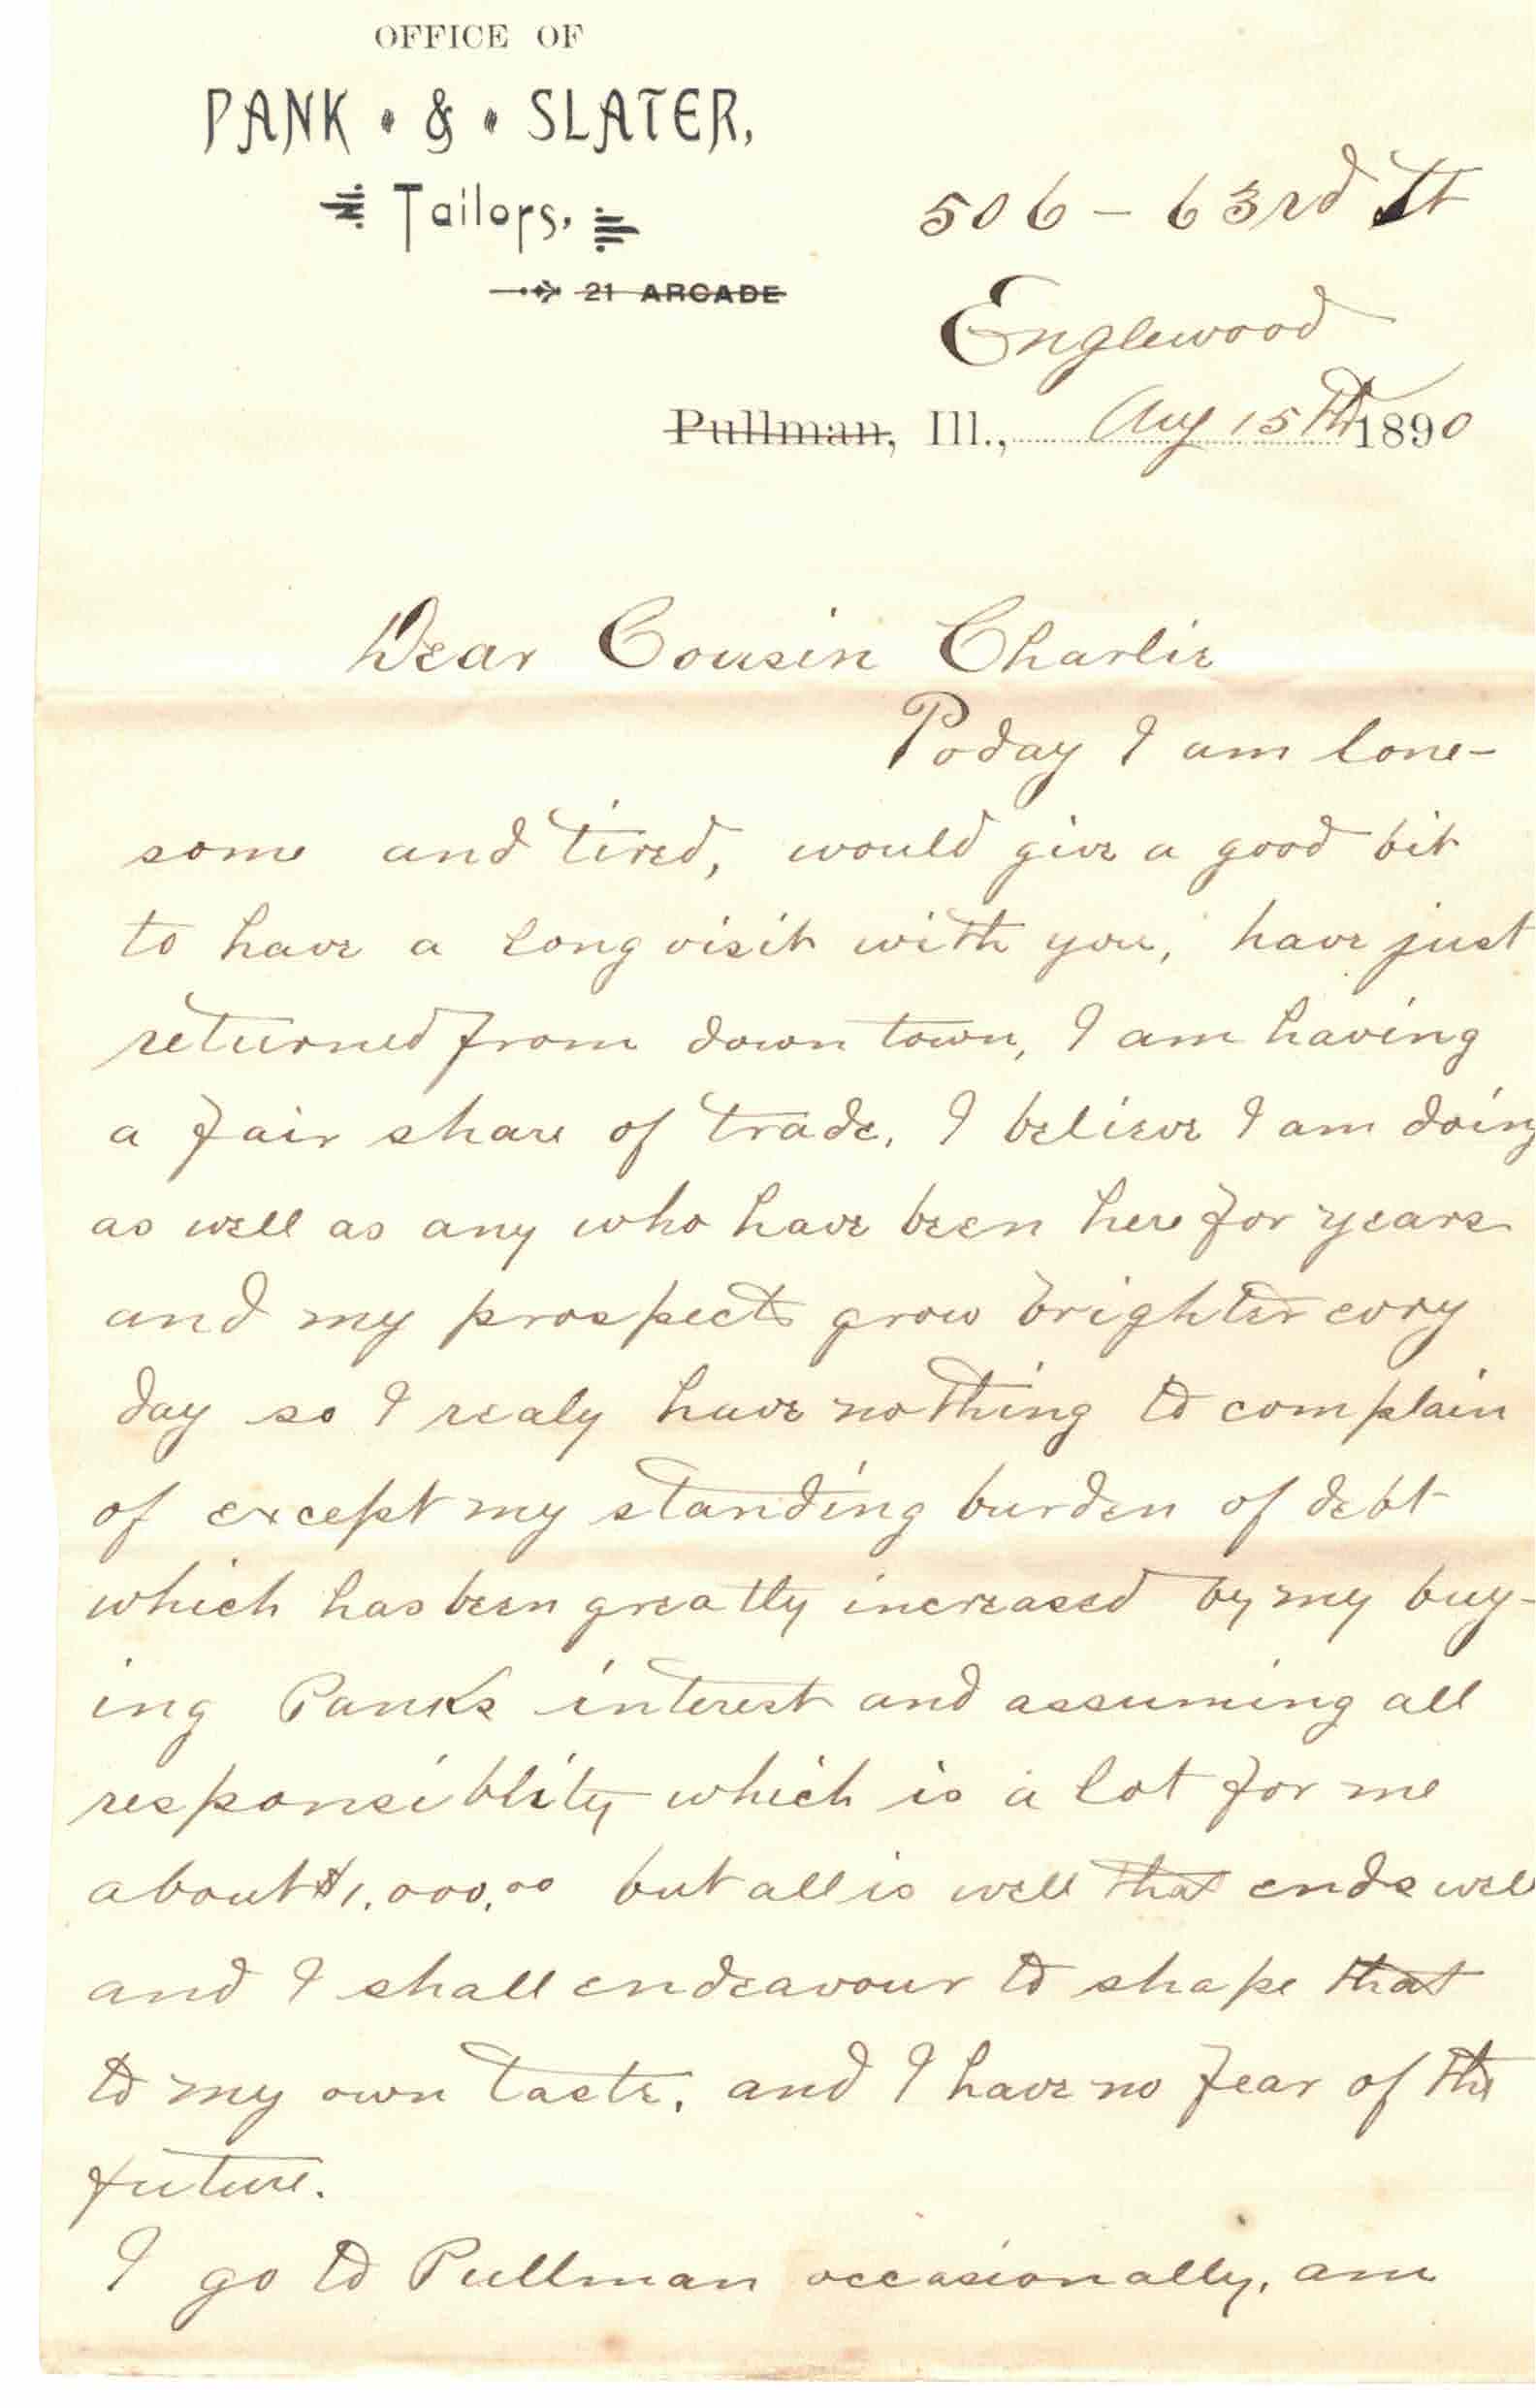 OFFICE OF
PANK & SLATER,
Tailors,
21 ARCADE
506 - 63rd St
Englewood
Pullman, Ill., Aug 15th 1890
Dear Cousin Charlie
Today I am lone-
some and tired, would give a good bit
to have a long visit with you, have just
returned from down town, I am having
a fair share of trade, I believe I am doing
as well as any who have been here for years
and my prospects grow brighter evry
day so I realy have nothing to complain
of except my standing burden of debt
which has been greatly increased by my buy-
ing Panks interest and assuming all
responsiblity which is a lot for me
about $1,000.00 but all is well that ends well
and I shall endeavour to shape that
to my own taste, and I have no fear of the
future.
I go to Pullman occasionally, am